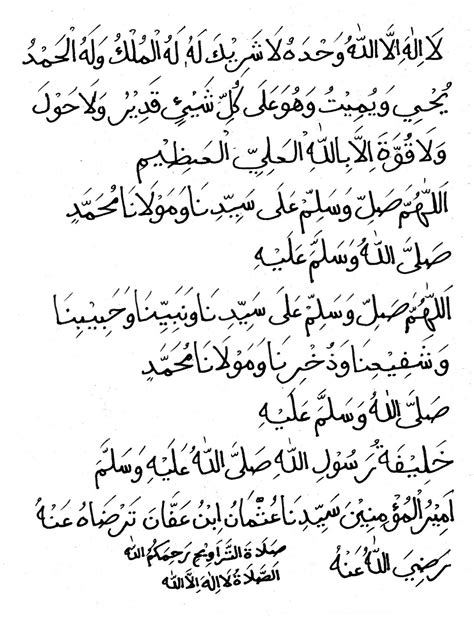 لَا اِلٰهَ اِلَّا اللّٰهُ وَحْدَهُ لَا شَرِيْكَ لَهُ، لَهُ الْمُلْكُ وَلَهُ الْحَمْدُ
يُحْيِي وَيُمِيْتُ وَهُوَ عَلَى كُلِّ شَيْئٍ قَدِيْرٌ وَلَا حَوْلَ
وَلَا قُوَّةَ اِلَّا بِاللّٰهِ الْعَلِيِّ الْعَظِيْمِ
اَللّٰهُمَّ صَلِّ وَسَلِّمْ عَلَى سَيِّدِنَا وَمَوْلَانَا مُحَمَّدٍ
صَلَّى اللّٰهُ وَسَلَّمَ عَلَيْهِ
اَللّٰهُمَّ صَلِّ وَسَلِّمْ عَلَى سَيِّدِنَا وَنَبِيِّنَا وَحَبِيْبِنَا
وَشَفِيْعِنَا وَذُخْرِنَا وَمَوْلَانَا مُحَمَّدٍ
صَلَّى اللّٰهُ وَسَلَّمَ عَلَيْهِ
خَلِيْفَةُ رَسُوْلِ اللّٰهِ صَلَّى اللّٰهُ عَلَيْهِ وَسَلَّمَ
اَمِيْرُ الْمُؤْمِنِيْنَ سَيِّدِنَا عُثْمَانُ ابْنُ عَفَّانَ تَرْضَاهُ عَنْهُ
رَضِيَ اللّٰهُ عَنْهُ
صَلَاةَ التَّرَاوِيْحِ رَحِمَكُمُ اللّٰه
اَلصَّلَاةُ لَا اِلٰهَ اِلَّا اللّٰه